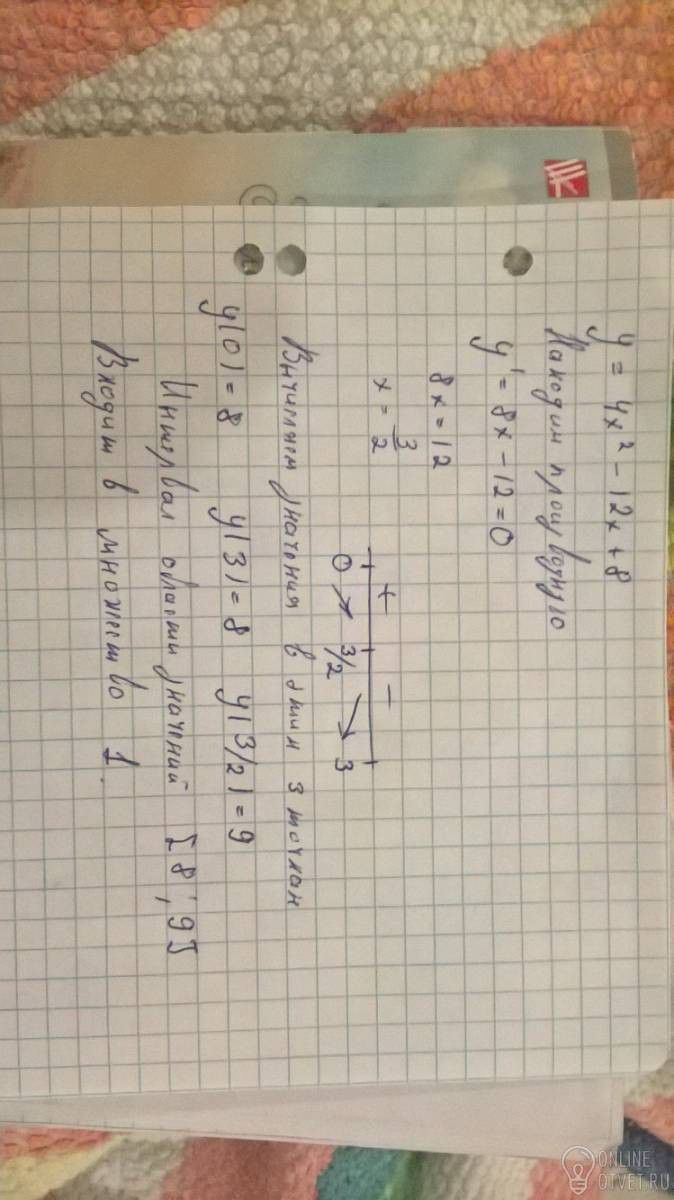 y = 4x² - 12x + 8
Находим производную
y' = 8x - 12 = 0
8x = 12
x = 3/2
+ −
0 3/2 3
Вычисляем значения в этих 3 точках
y(0) = 8 y(3) = 8 y(3/2) = 9
Интервал области значений [8; 9]
Входит в множество 1.
ONLINE
OTVET.RU